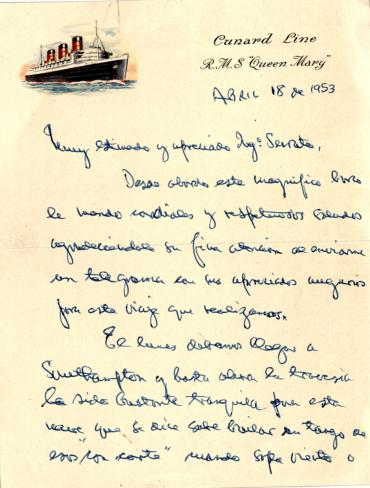 Cunard Line
R.M.S. "Queen Mary"
Abril 18 de 1953
Muy estimado y apreciado Ing.º Serrato,
Desde abordo este magnífico barco
le mando cordiales y respetuosos saludos
agradeciéndole su fina atención de enviarme
un telegrama con sus apreciados augurios
para este viaje que realizamos.
El lunes debemos llegar a
Southampton y hasta ahora la travesía
ha sido bastante tranquila para esta
nave que se dice sabe bailar un tango de
esos "con corte" cuando sopla viento o